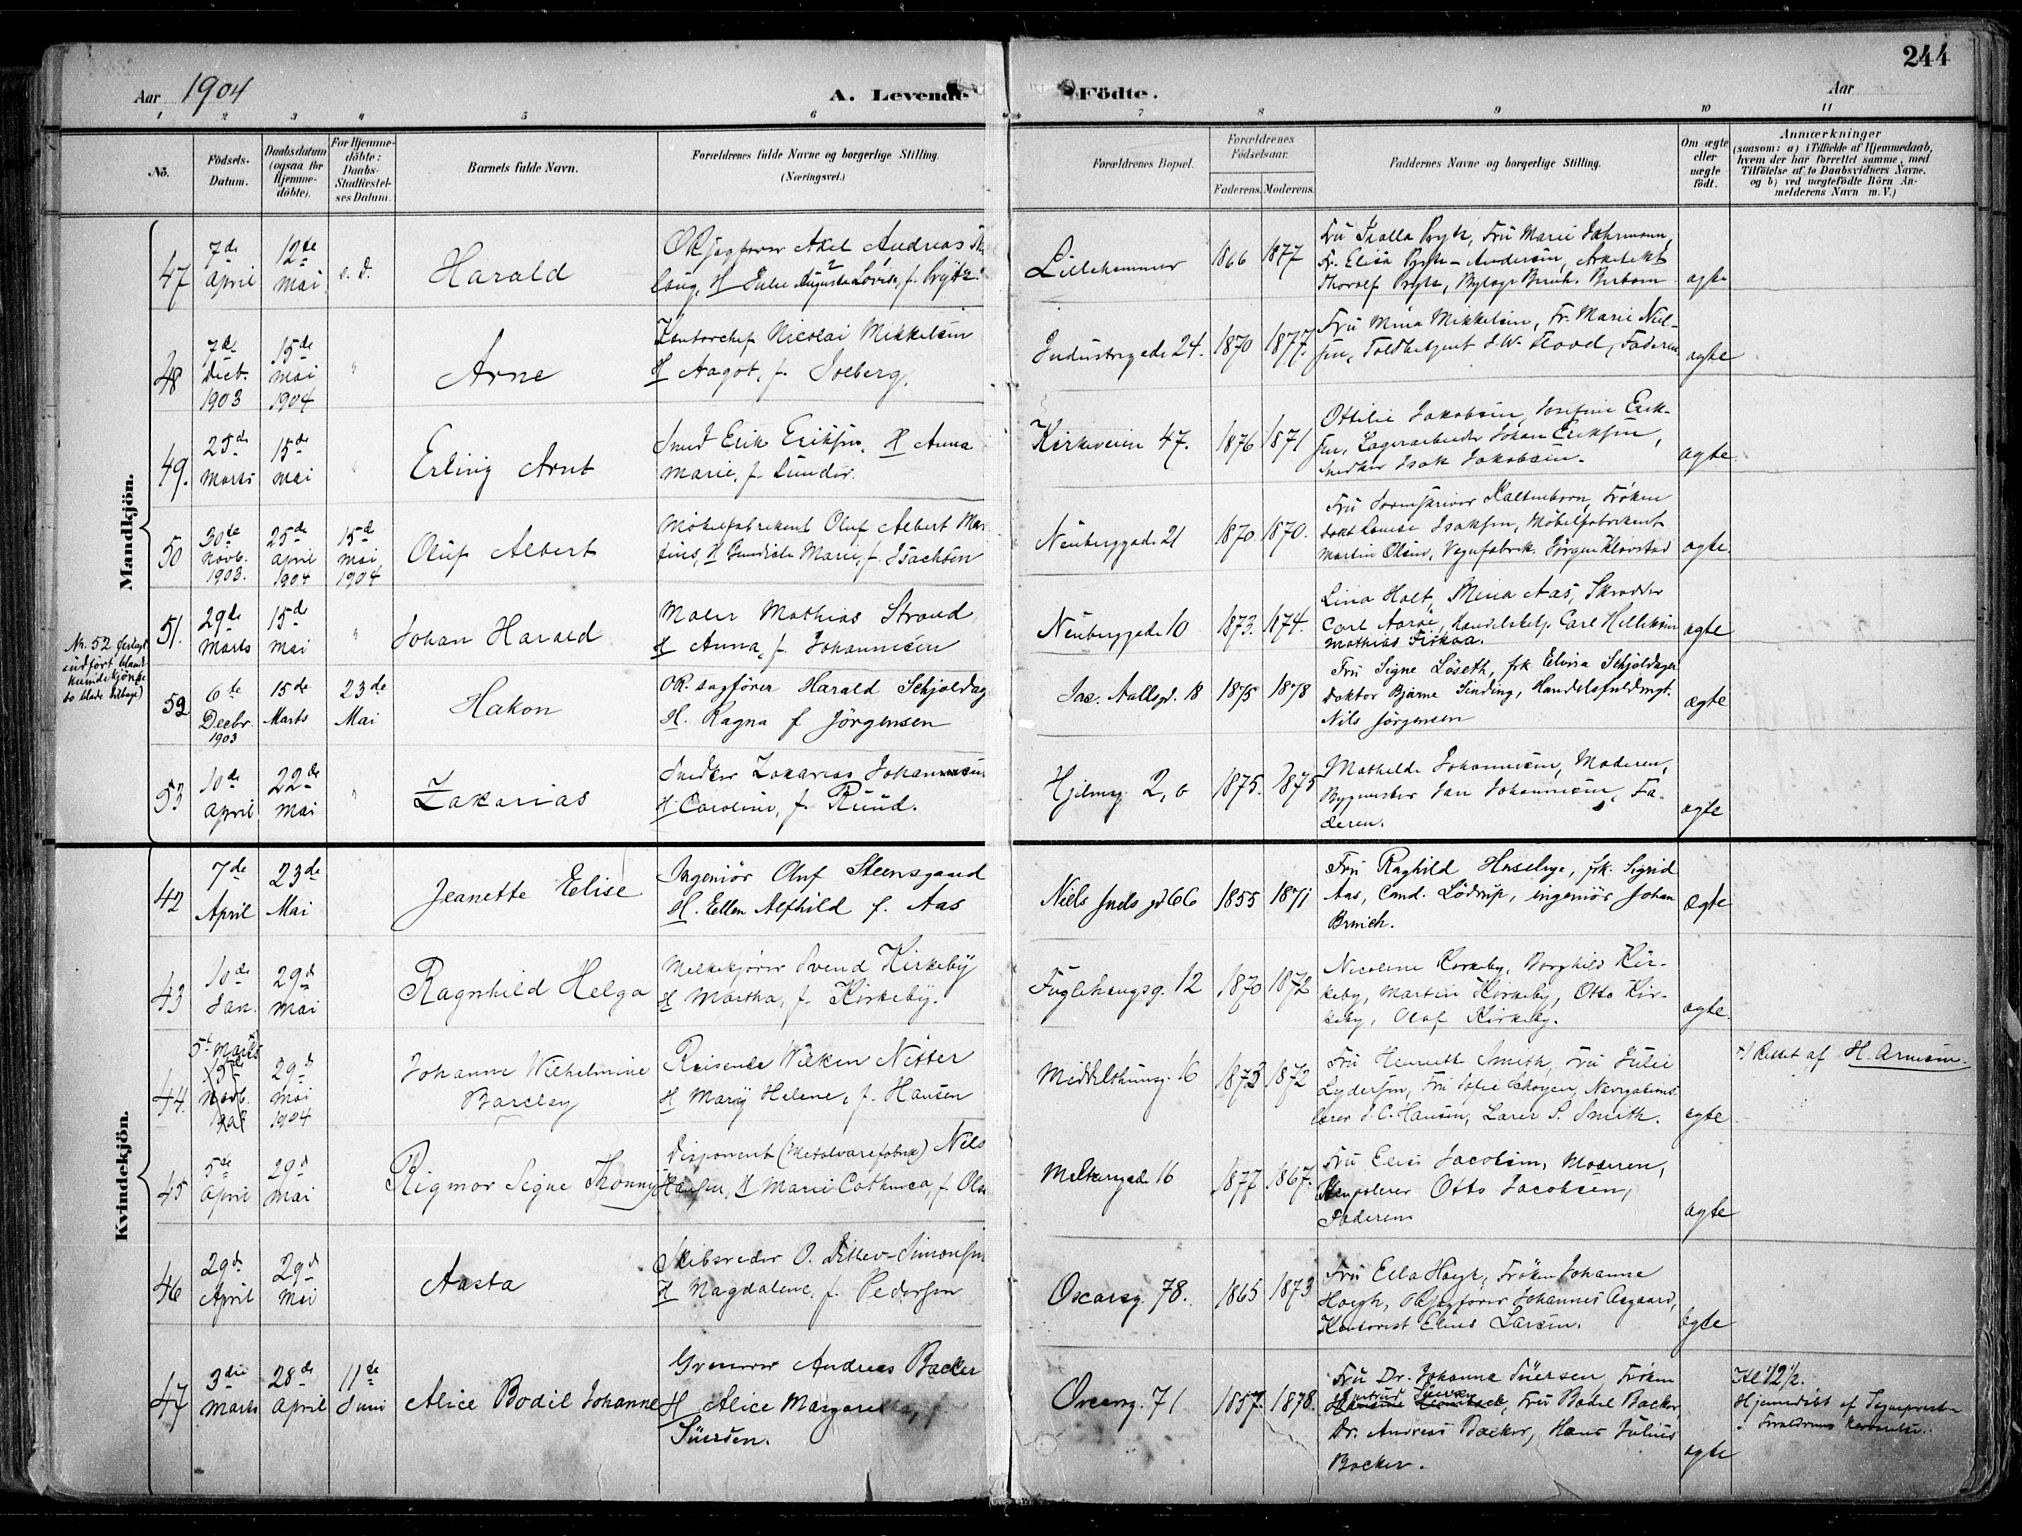 244
Aar 1904
A. Levende Födte.
Aar
1 2 3 4 5 6 7 8 9 10 11
No.
Födsels-
Datum.
Daabsdatum
(ogsaa for
Hjemme-
döbte).
For Hjemme-
döbte:
Daabs-
Stadfæstel-
ses Datum.
Barnets fulde Navn.
Forældrenes fulde Navne og borgerlige Stilling.
(Næringsvei.)
Forældrenes Bopæl.
Forældrenes
Födselsaar.
Faderens. Moderens.
Faddernes Navne og borgerlige Stilling.
Om ægte
eller
uægte
födt.
Anmærkninger
(saasom: a) i Tilfælde af Hjemmedaab,
hvem der har forrettet samme, med
Tilföielse af to Daabsvidners Navne.
og b) ved uægtefödte Börn An-
melderens Navn m. V.)
Mandkjön.
47
7de
April
12te
Mai
s. d.
Harald
ORsagfører Axel Andreas
H Julie Augusta Lovise, f. Prytz.
Lillehammer
1866 1877
Fru Isalla Prytz, Fru Marie
Fr. Elisa Prytz-Andersen, Arkitekt
Thorolf Prytz,
ægte
48
7de
Decb.
1903
15de
Mai
1904
"
Arne
Kontorchef Nicolai Mikkelsen
H Aagot, f. Solberg.
Industrigade 24.
1870 1877.
Fru Mina Mikkelsen, Fr. Marie Niel-
sen, Toldbetjent J. W. Flood, Faderen
ægte
49.
25de
Marts
15de
Mai
"
Erling Arnt
Smed Erik Eriksen, H Anna
Marie, f. Lunder.
Kirkeveien 47.
1876 1871
Ottilie Jakobsen, Josefine Erik-
sen, Lagerarbeider Johan Eriksen,
Snedker Isak Jakobsen.
ægte.
50
30te
Novb.
1903.
25de
April
1904
15de
Mai
1904
Oluf Albert
Möbelfabrikant Oluf Albert Mar
tins, H Bendicte Marie, f. Isachsen
Neuberggade 21
1870 1870.
Fru Sorenskriver Kaltenborn, Fröken
Louise Isaksen, Möbelfabrikant
Martin Olsen, Vognfabrik. Jörgen Klövstad
ægte.
51.
29de
Marts
15de
Mai
"
Johan Harald
Maler Mathias Strand
H Anna, f. Johannesen
Neuberggade 10
1873. 1874.
Lina Holt, Mina Aas, Skrædder
Carl Aaröe, Handelsbetj. Carl Helliksen
Mathias Fiskaa.
ægte
Nr. 52
indfört blandt
kvindekjön
to blade tilbage)
52
6te
Decbr
1903
15de
Marts
23de
Mai
Hakon
OR. sagförer Harald Schjoldag
H. Ragna f Jörgensen
Jac. Aallsgd. 18
1875 1878
Fru Signe Löseth, frk Elvira Schjoldager
Doktor Bjarne Sinding, Handelsfuldmgt.
Nils Jörgensen
ægte
53
10de
April
22de
Mai
"
Zakarias
Snedker Zakarias Johannesen
H Caroline, f. Ruud.
Hjelmsg 2, o
1875. 1875
Mathilde Johannesen, Moderen,
Bygmester Jan Johannesen, Fa-
deren.
ægte
Kvindekjön.
42
7de
April
23de
Mai
Jeanette Elise
Ingeniör Oluf Steensgaard
H. Ellen Alfhild f. Aas
Niels Juels gd 66
1855 1871
Fru Raghild Huseby, frk. Sigrid
Aas, Cand. Lödrup, ingeniör Johan
Brinch.
Ægte
43
10de
Jan.
29de
Mai
Ragnhild Helga
Melkekjörer Svend Kirkeby
H Martha, f. Kirkeby.
Fuglehaugsg. 12
1870 1872
Nicoline Kirkeby, Borghild Kir-
keby, Martin Kirkeby, Otto Kir-
keby, Olaf Kirkeby.
ægte.
44.
5te Marts
29de
Mai
1904
Johanne Wilhelmine
Barclay
Reisende Wilken Nitter
H Mary Helene, f. Hansen
Middelthunsg. 16
1873 1872
Fru Henriette Smith, Fru Julie
Lydersen, Fru Sofie Skogen, Navigations
lærer J. C. Hansen, Lærer P. Smith.
ægte.
+) Rettet af H. Arnesen.
45
5te
April
29de
Mai
Rigmor Signe Thonny
Disponent (Metalvarefabrik) Nils
Hansen, H Marie Cathinca, f. Olsen
Meltzersgade 16
1877 1867.
Fru Elise Jacobsen, Moderen,
Otto Jacobsen,
Faderen
ægte
46
29de
April
29de
Mai
Aasta
Skibsreder O. Ditlev-Simonsen
H Magdalene, f. Pedersen
Oscarsg. 78.
1865 1873
Fru Ella Høegh, Fröken Johanne
Høegh, ORsagförer Johannes Aagaard,
Kontorist Elnes Larsen.
ægte
47
3die
Marts
28de
April
11te
Juni
Alice Bodil Johanne
Grosserer Andreas Backer
H Alice Margaretha, f.
Süersen.
Oscarsg. 71
1857. 1878.
Fru Dr. Johanna Süersen, Fröken
Gertrud Süersen, Fru Bodil Backer
Dr. Andreas Backer, Hans Julius
Backer.
ægte
Kl 12 1/2.
Hjemmedöbt af Sognepresten